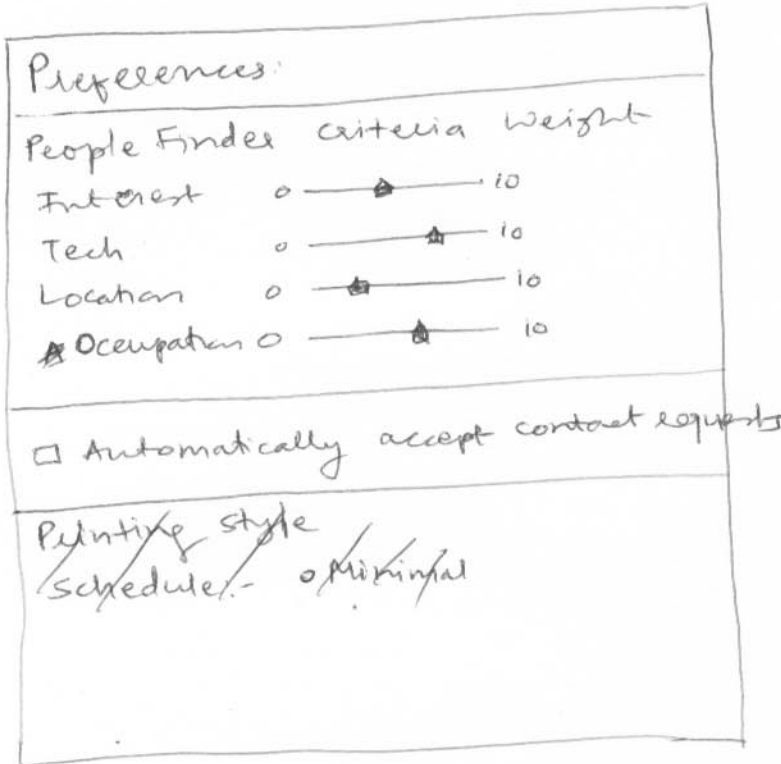 Preferences:
People Finder criteria weight
Interest 0 10
Tech 0 10
Location 0 10
Occupation 0 10
Automatically accept contact requests
Printing style
Schedule:- Minimal